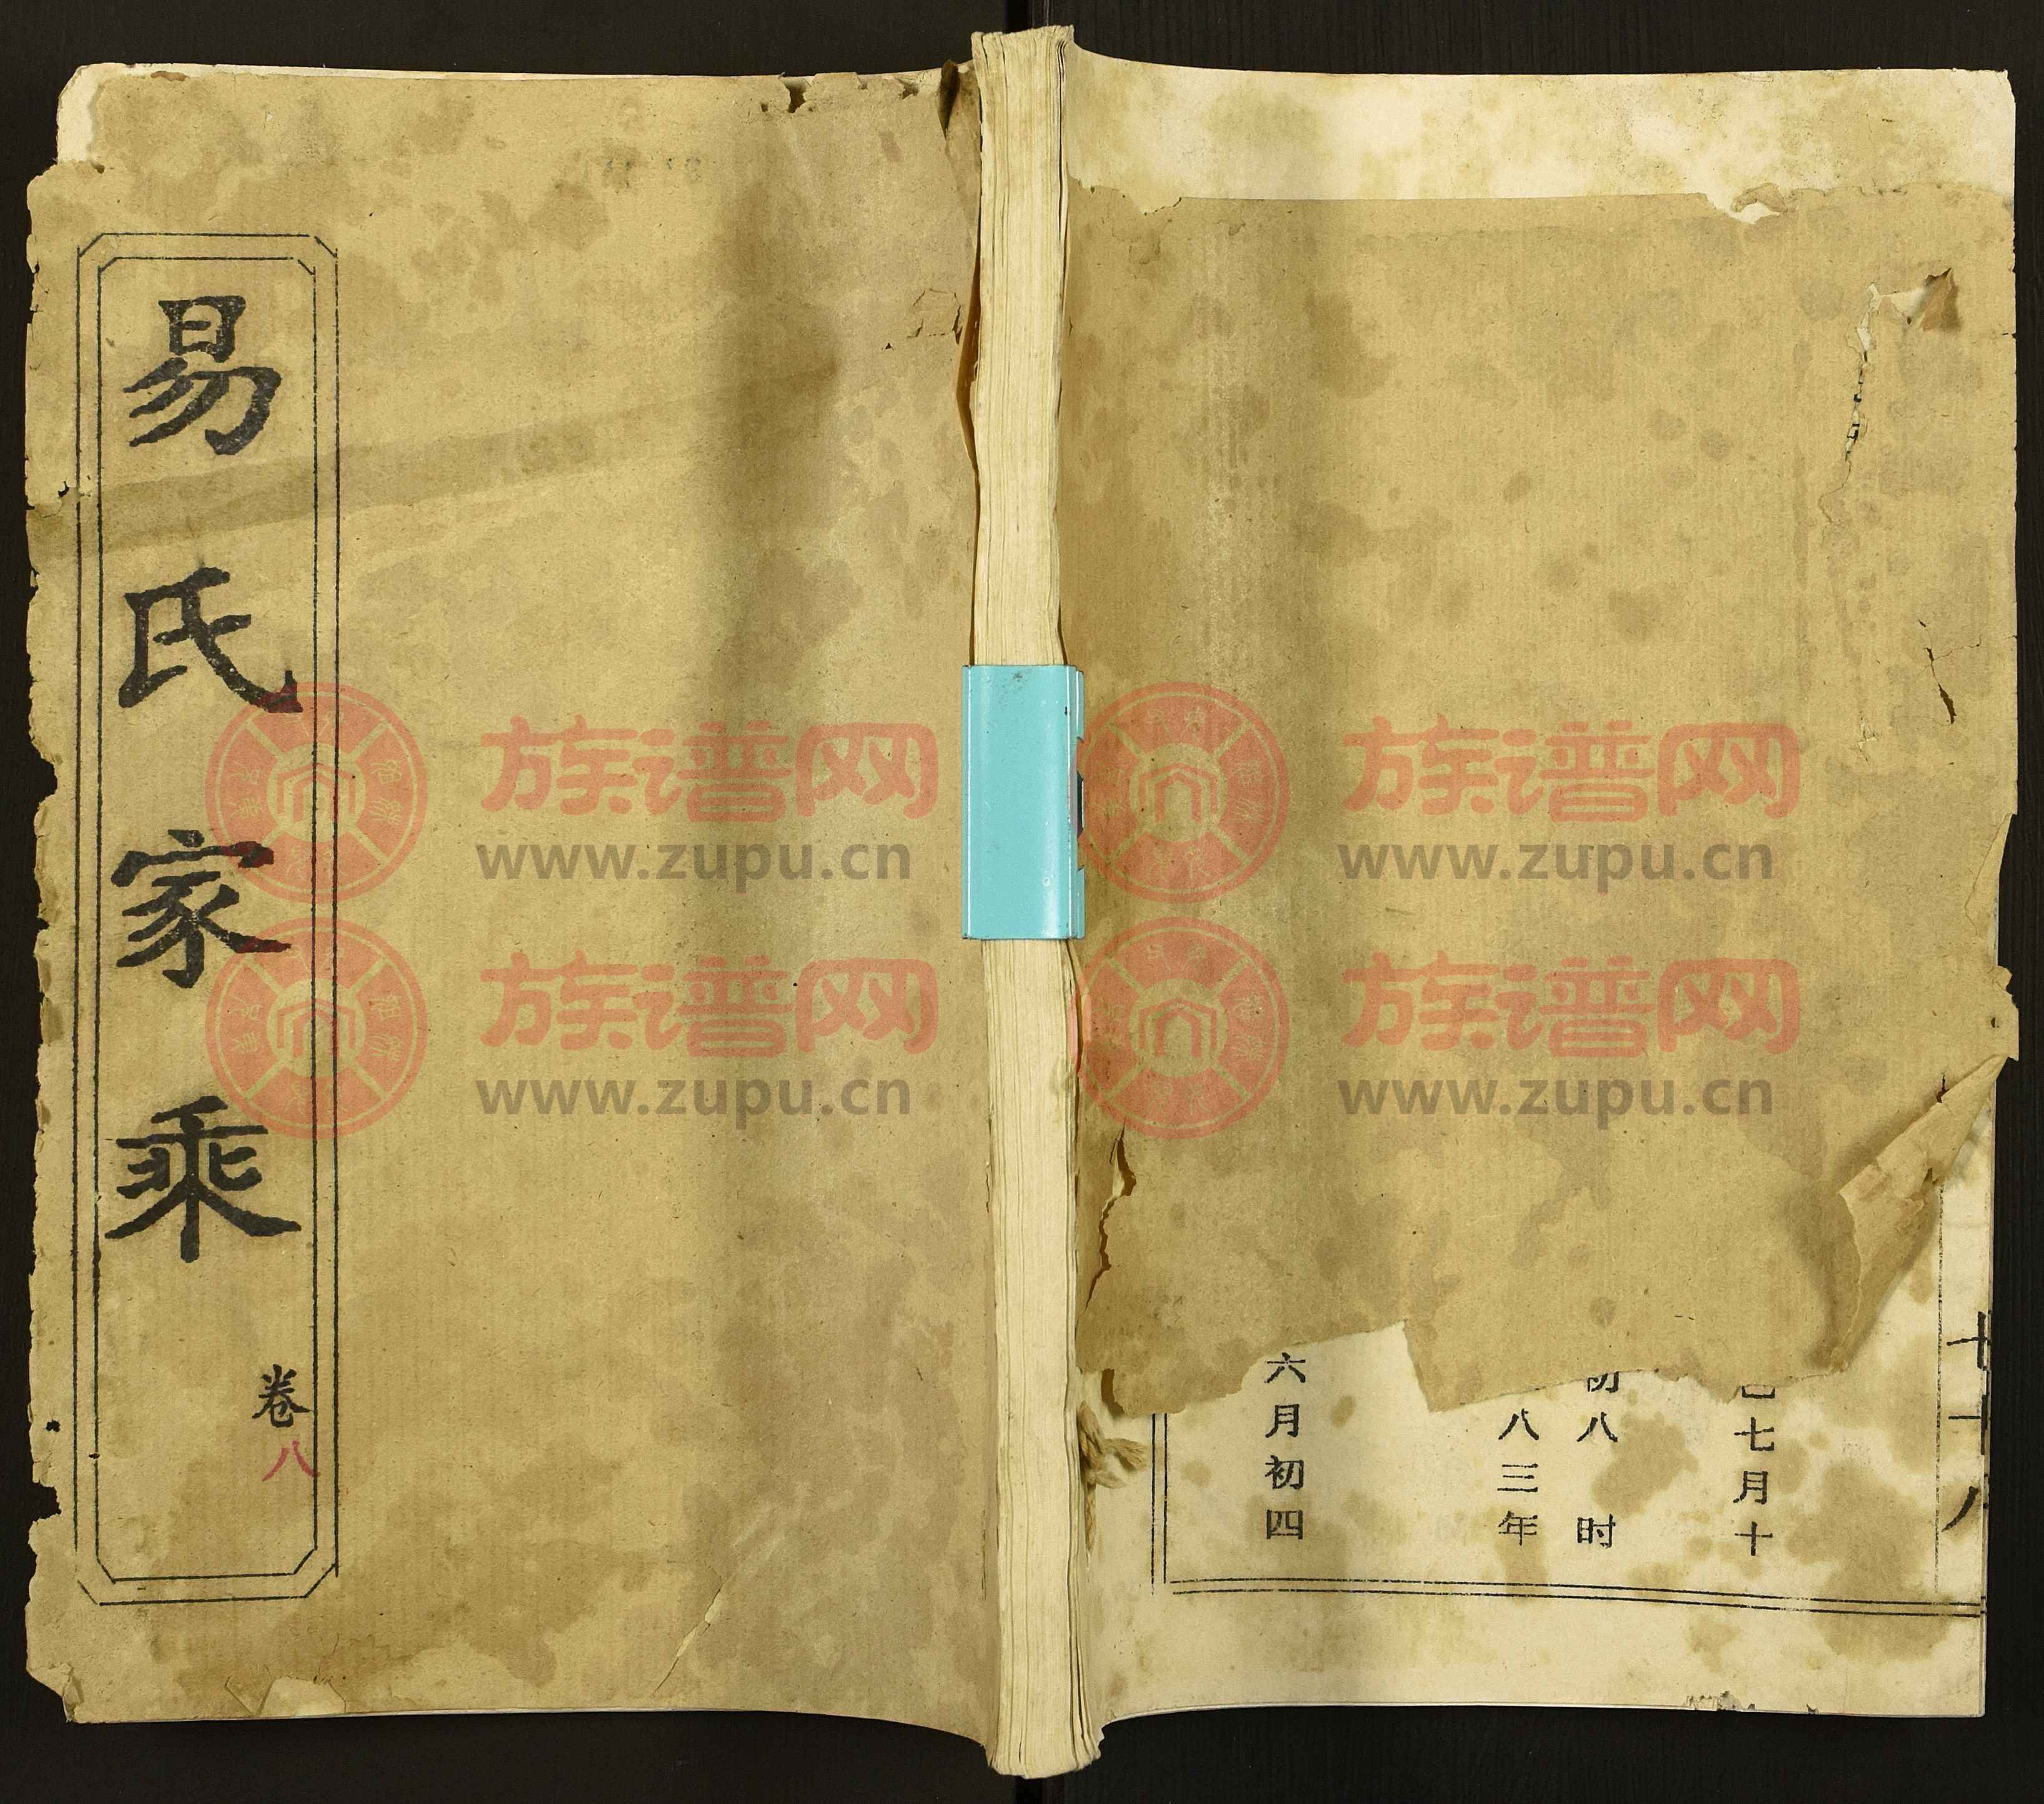 易氏家乘
卷八
七月十
初八 时
八三年
六月初四
族谱网
www.zupu.cn
族谱网
www.zupu.cn
族谱网
www.zupu.cn
族谱网
www.zupu.cn